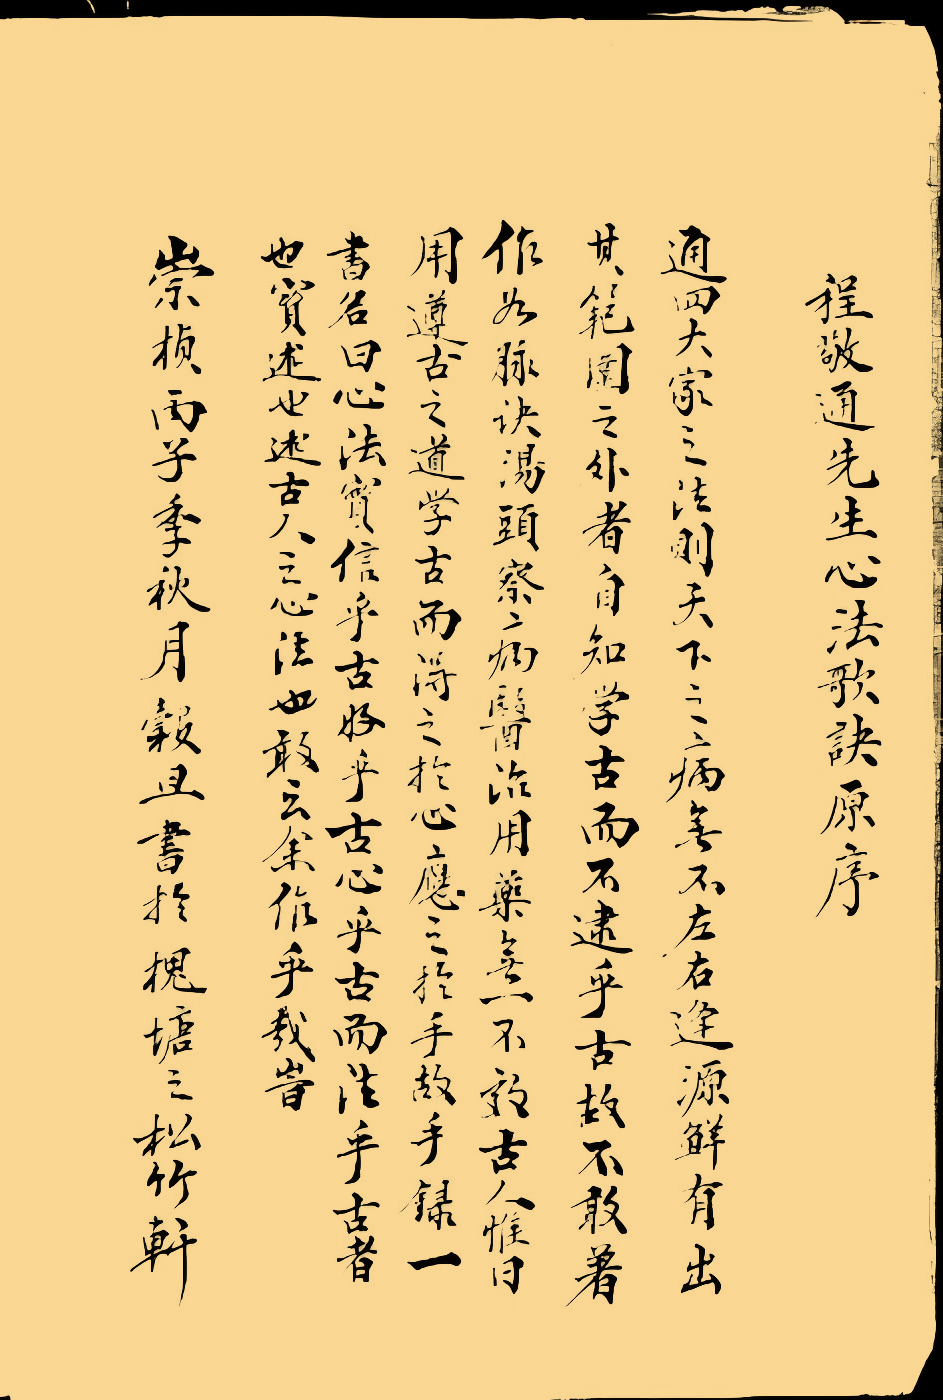 程敬通先生心法歌訣原序
通四大家之法則天下之病無不左右逢源鮮有出
其範圍之外者自知学古而不逮乎古故不敢著
作如脉訣湯頭察病醫治用藥無一不效古人惟日
用遵古之道学古而得之於心應之於手故手録一
書名曰心法實信乎古好乎古心乎古而法乎古者
也實述也述古人之心法也敢云余作乎哉旹
崇楨丙子季秋月穀旦書於槐塘之松竹軒